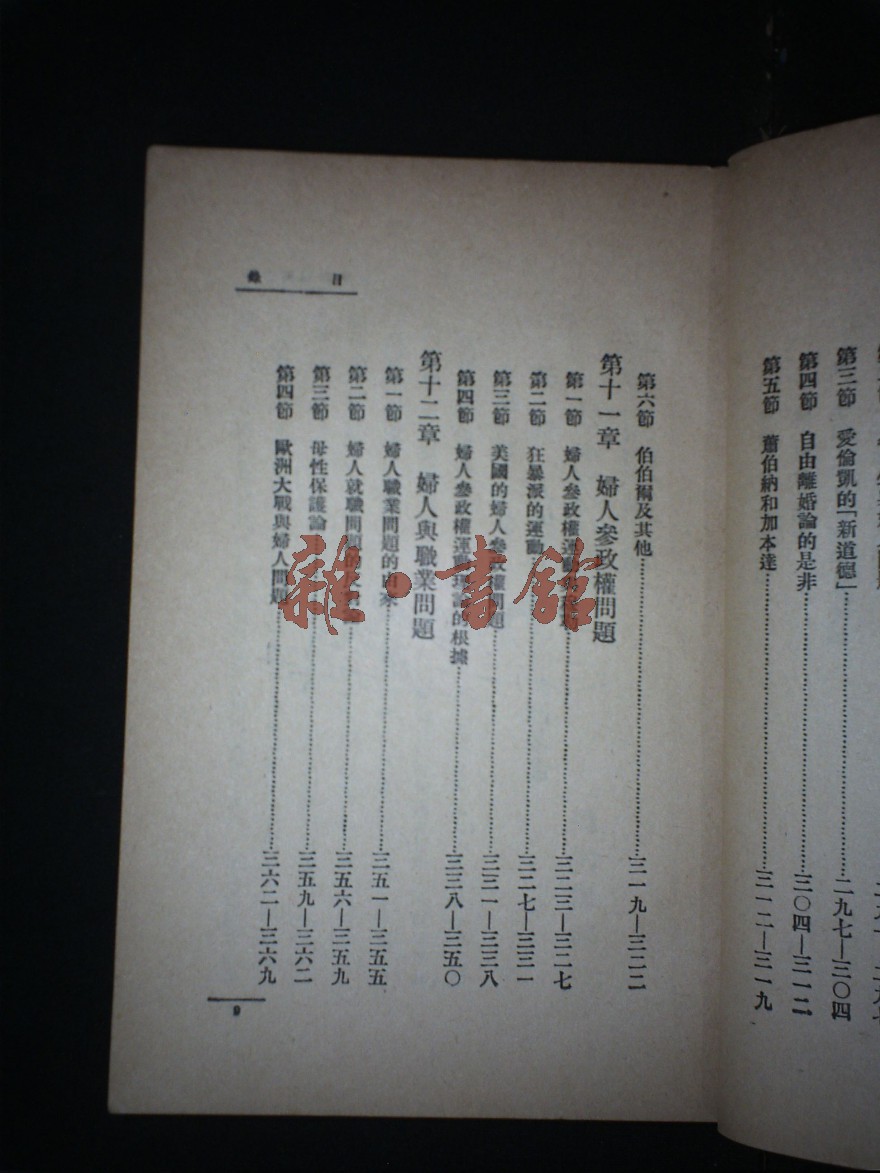 第三節　愛倫凱的「新道德」二九七—三〇四
第四節　自由離婚論的是非三〇四—三一二
第五節　蕭伯納和加本達三一二—三一九
目錄
第六節　伯伯爾及其他三一九—三二二
第十一章　婦人參政權問題
第一節　婦人參政權運動三二三—三二七
第二節　狂暴派的運動三二七—三三一
第三節　美國的婦人參政權問題三三一—三三八
第四節　婦人參政權運動理論的根據三三八—三五〇
第十二章　婦人與職業問題
第一節　婦人職業問題的由來三五一—三五五
第二節　婦人就職問題的三五六—三五九
第三節　母性保護論三五九—三六二
第四節　歐洲大戰與婦人問題三六二—三六九
9
雜·書館